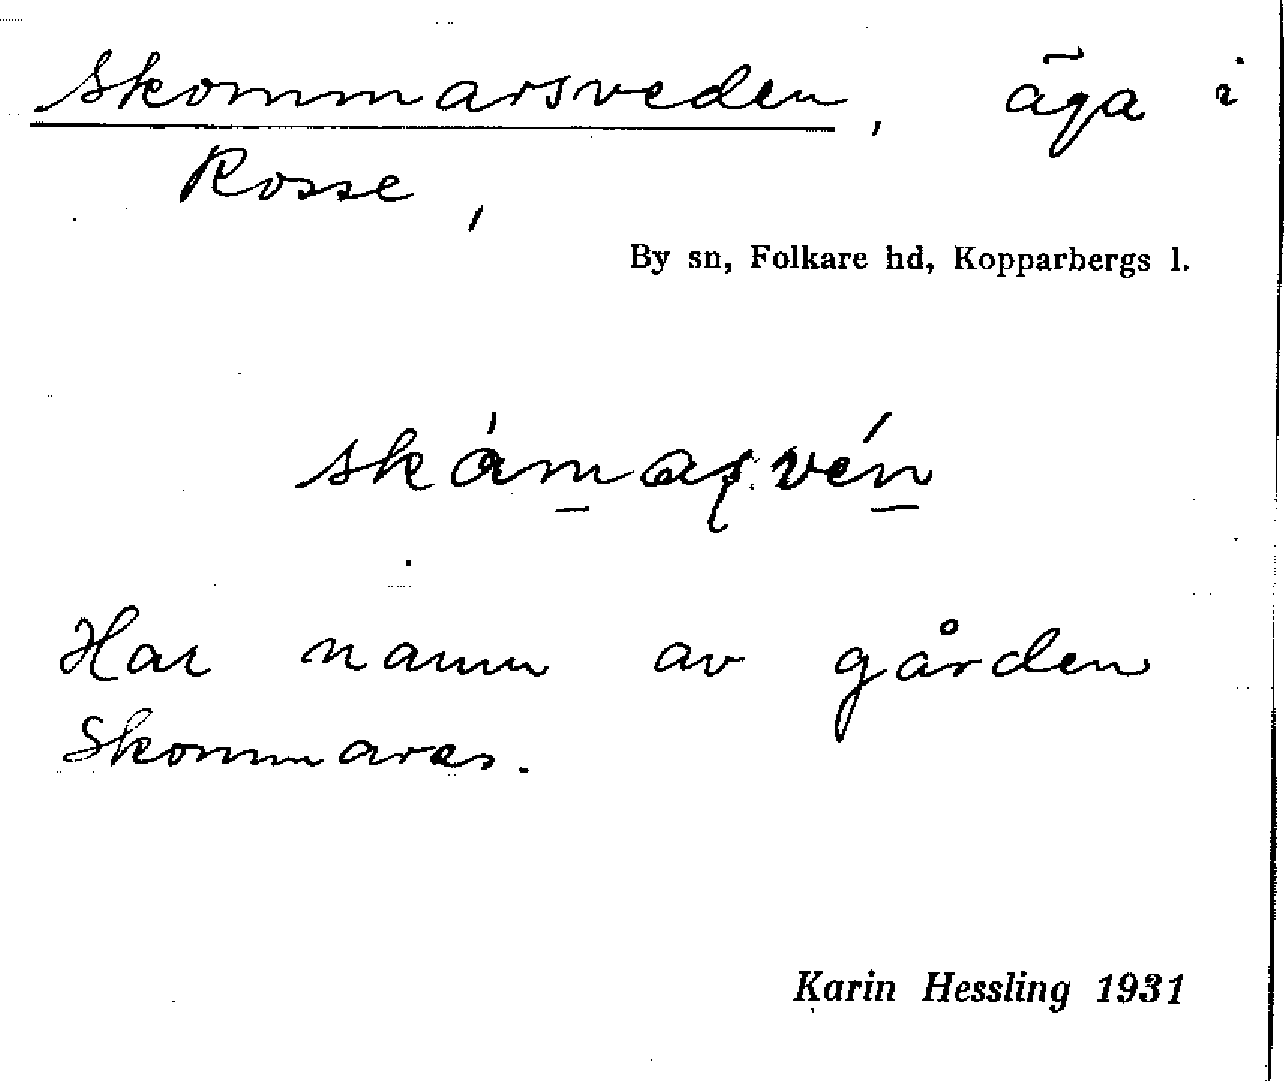 Skommarsveden, äga i
Rosse,
By sn, Folkare hd, Kopparbergs l.
Har namn av gården
Skommaras.
Karin Hessling 1931